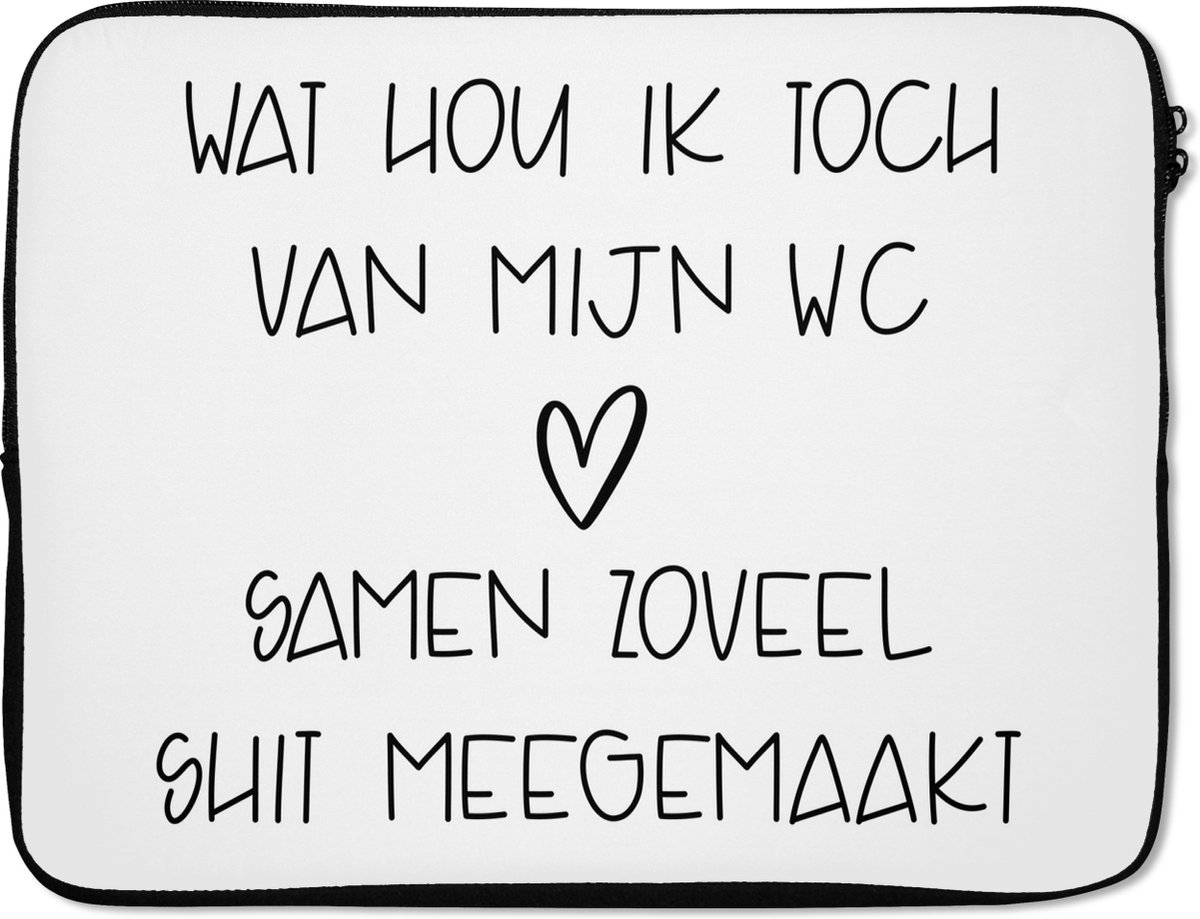 WAT HOU IK TOCH
VAN MIJN WC
SAMEN ZOVEEL
SHIT MEEGEMAAKT